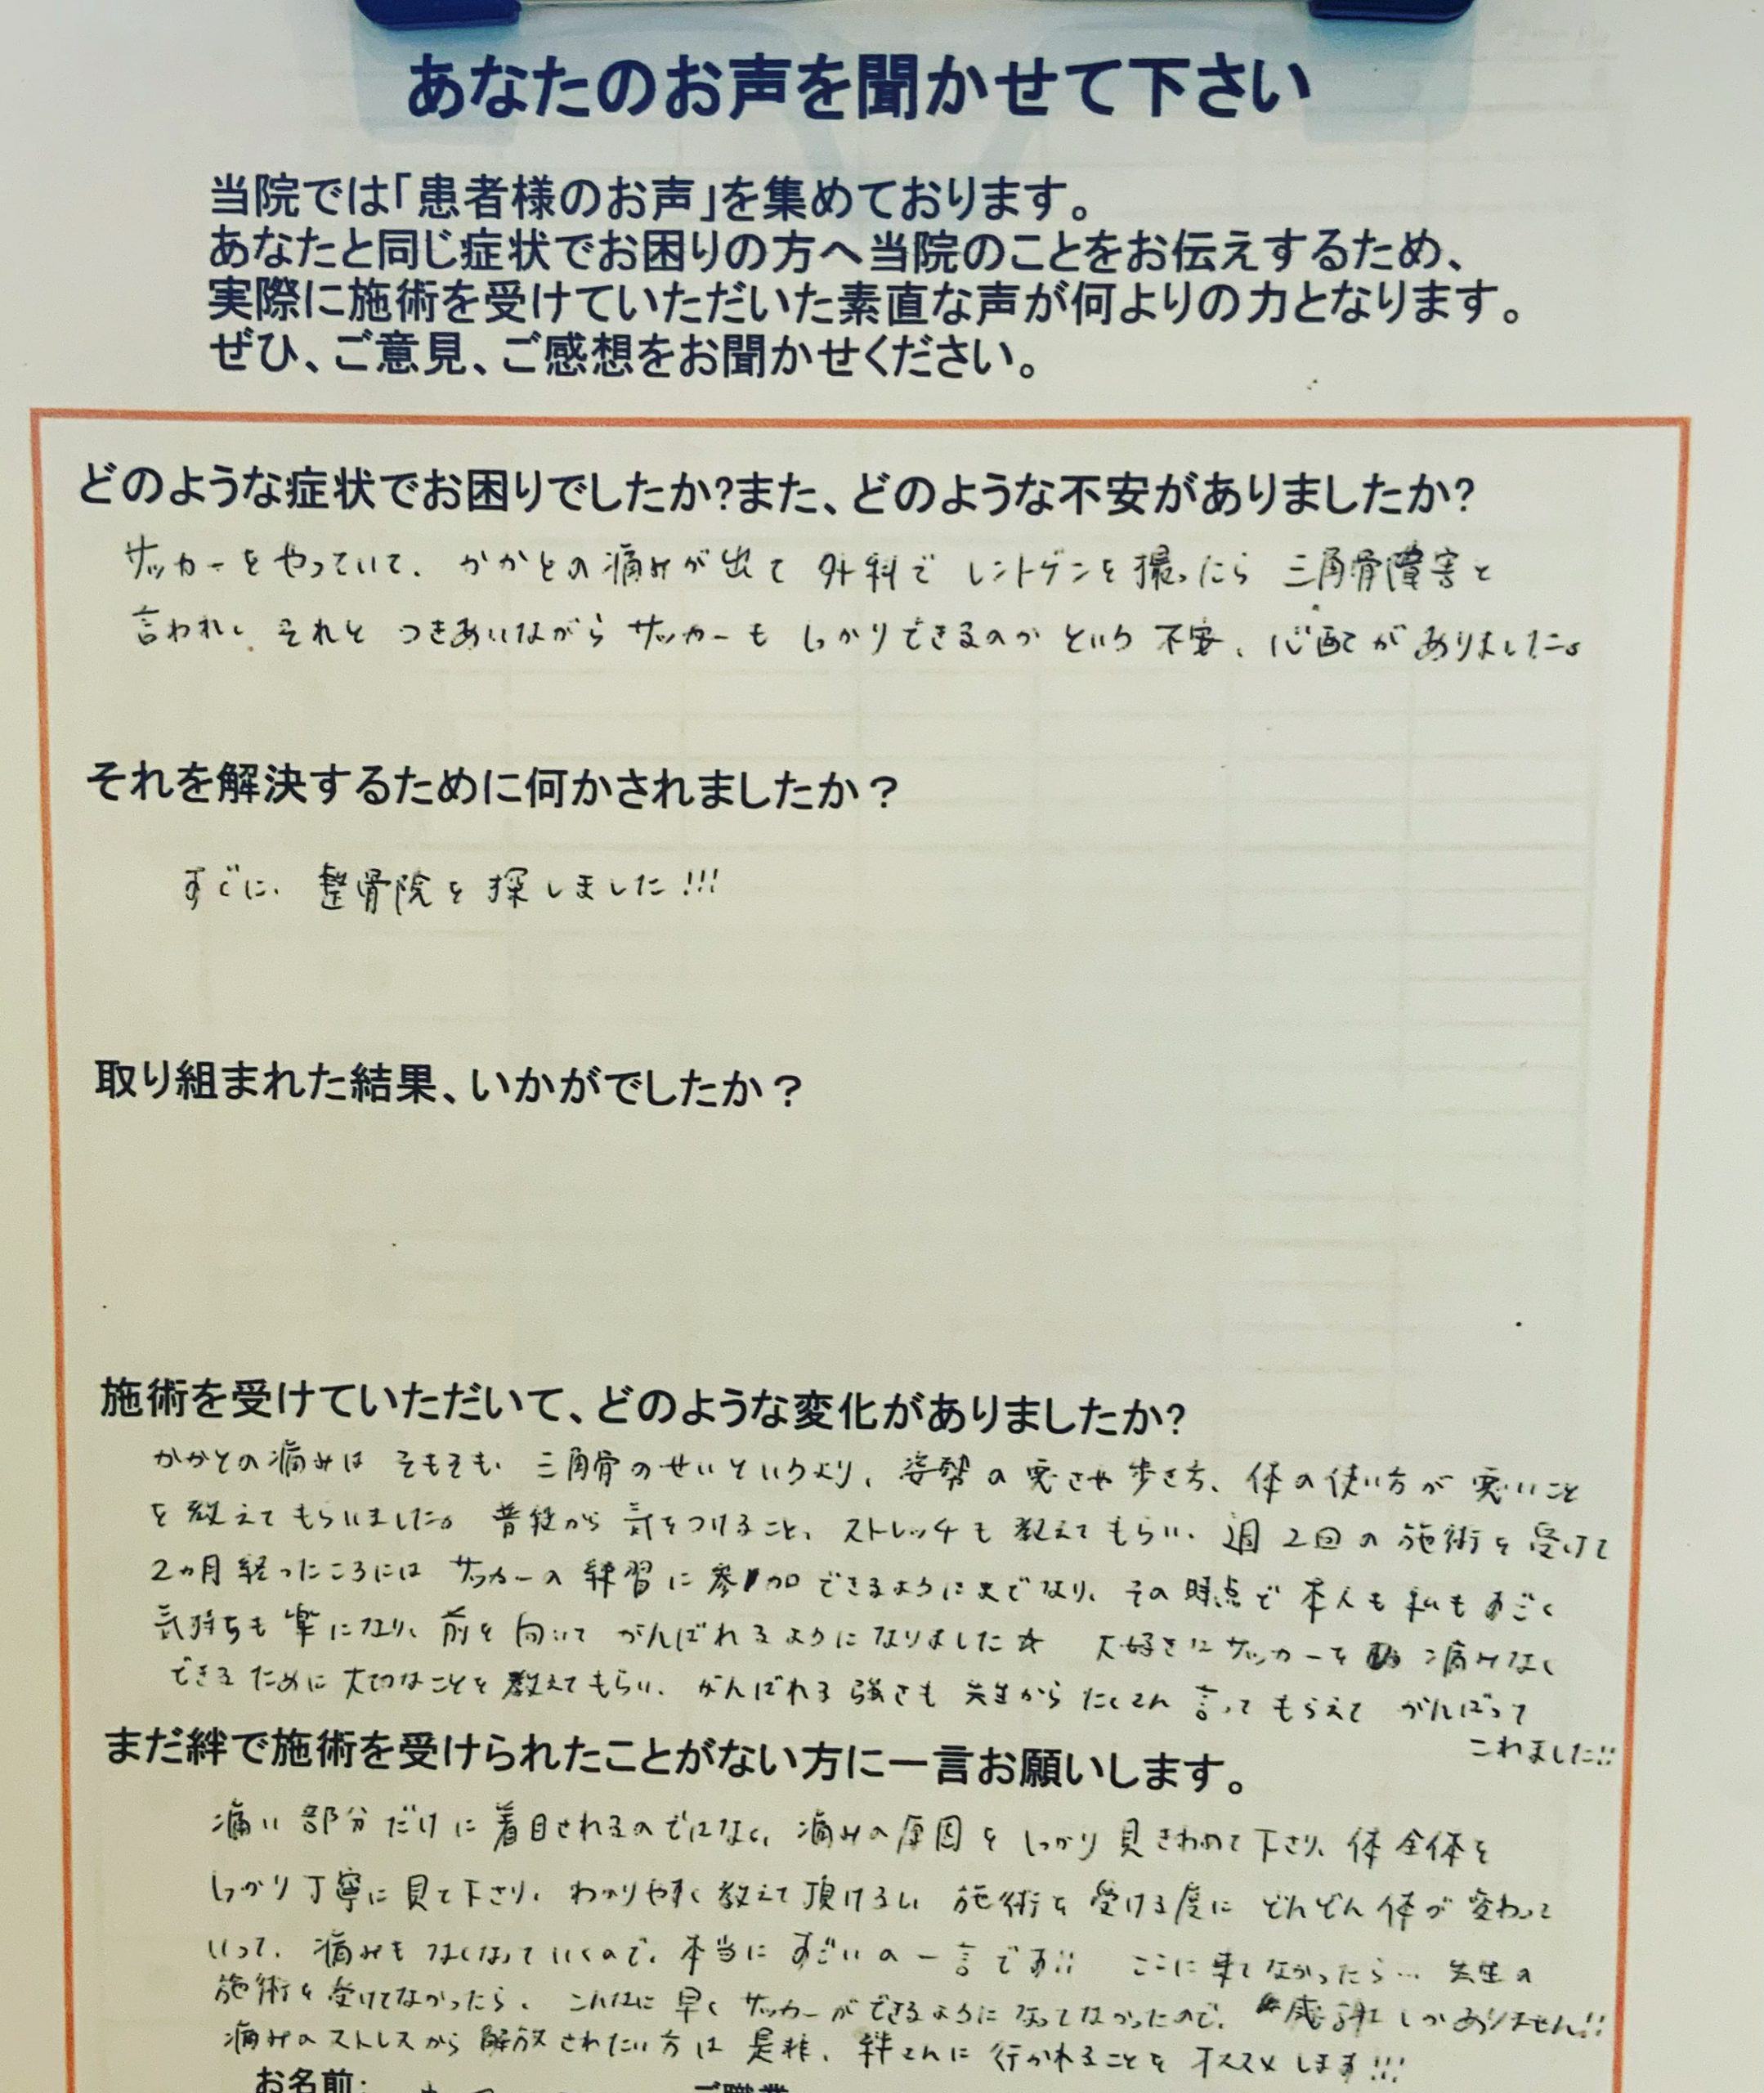 あなたのお声を聞かせて下さい
当院では「患者様のお声」を集めております。
あなたと同じ症状でお困りの方へ当院のことをお伝えするため、
実際に施術を受けていただいた素直な声が何よりの力となります。
ぜひ、ご意見、ご感想をお聞かせください。
どのような症状でお困りでしたか?また、どのような不安がありましたか?
サッカーをやっていて、かかとの痛みが出て外科でレントゲンを撮ったら三角骨障害と
言われ、それとつきあいながらサッカーもしっかりできるのかという不安、心配がありました。
それを解決するために何かされましたか？
すぐに、整骨院を探しました!!!
取り組まれた結果、いかがでしたか？
施術を受けていただいて、どのような変化がありましたか?
かかとの痛みはそもそも、三角骨のせいというより、姿勢の悪さや歩き方、体の使い方が悪いこと
を教えてもらいました。普段から気をつけること、ストレッチも教えてもらい、週2回の施術を受けて
2ヵ月経ったころにはサッカーの練習に参加できるようにまでなり、その時点で本人も私もすごく
気持ちも楽になり、前を向いてがんばれるようになりました☆ 大好きなサッカーを痛みなく
できるために大切なことを教えてもらい、がんばれる強さも先生からたくさん言ってもらえてがんばって
これました!!
まだ絆で施術を受けられたことがない方に一言お願いします。
痛い部分だけに着目されるのではなく、痛みの原因をしっかり見きわめて下さり、体全体を
しっかり丁寧に見て下さり、わかりやすく教えて頂けるし施術を受ける度にどんどん体が変わって
いって、痛みもなくなっていくので、本当にすごいの一言です!! ここに来てなかったら… 先生の
施術を受けてなかったら、こんなに早くサッカーができるようになってなかったので、感謝しかありません!!
痛みのストレスから解放されたい方は是非、絆さんに行かれることをオススメします!!!
お名前:
ご職業